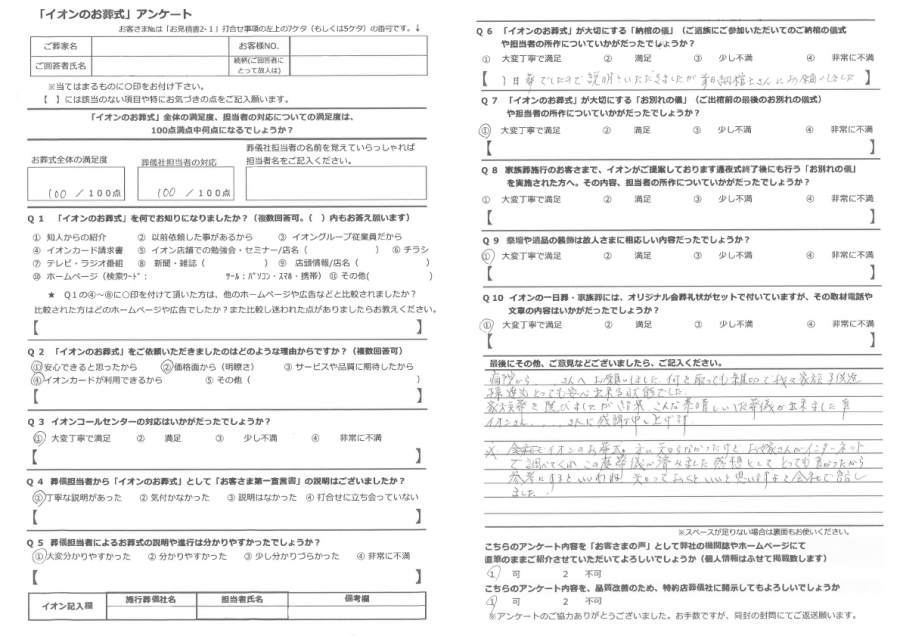 「イオンのお葬式」アンケート
お客さま№は「お見積書2-1」打合せ事項の左上の7ケタ（もしくは5ケタ）の番号です。↓
ご葬家名 お客様NO.
ご回答者氏名 続柄(ご回答者にとって故人は)
※当てはまるものに〇印をお付け下さい。
【　】には該当のない項目や特にお気づきの点をご記入願います。
「イオンのお葬式」全体の満足度、担当者の対応についての満足度は、
100点満点中何点になるでしょうか？
お葬式全体の満足度 葬儀社担当者の対応 葬儀社担当者の名前を覚えていらっしゃれば担当者名をご記入ください。
100 / 100点 100 / 100点
Q１　「イオンのお葬式」を何でお知りになりましたか？（複数回答可。（　）内もお答え願います）
① 知人からの紹介　② 以前依頼した事があるから　③ イオングループ従業員だから
④ イオンカード請求書　⑤ イオン店舗での勉強会・セミナー/店名（　　）⑥ チラシ
⑦ テレビ・ラジオ番組　⑧ 新聞・雑誌（　　）⑨ 店頭情報/店名（　　）
⑩ ホームページ（検索ﾜｰﾄﾞ：　　ﾂｰﾙ：ﾊﾟｿｺﾝ・ｽﾏﾎ・携帯）⑪ その他(　　)
★　Q１の④～⑧に〇印を付けて頂いた方は、他のホームページや広告などと比較されましたか？
比較された方はどのホームページや広告でしたか？また比較し迷われた点がありましたらお教えください。
【　】
Q２　「イオンのお葬式」をご依頼いただきましたのはどのような理由からですか？（複数回答可）
①安心できると思ったから　②価格面から（明瞭さ）　③ サービスや品質に期待したから
④イオンカードが利用できるから　⑤ その他（　　）
【　】
Q３　イオンコールセンターの対応はいかがだったでしょうか？
① 大変丁寧で満足　② 満足　③ 少し不満　④ 非常に不満
【　】
Q４　葬儀担当者から「イオンのお葬式」として「お客さま第一宣言書」の説明はございましたか？
①丁寧な説明があった　② 気付かなかった　③ 説明はなかった　④ 打合せに立ち会っていない
【　】
Q５　葬儀担当者によるお葬式の説明や進行は分かりやすかったでしょうか？
①大変分かりやすかった　② 分かりやすかった　③ 少し分かりづらかった　④ 非常に不満
【　】
イオン記入欄 施行葬儀社名 担当者氏名 備考欄
Q６　「イオンのお葬式」が大切にする「納棺の儀」（ご遺族にご参加いただいてのご納棺の儀式
や担当者の所作についていかがだったでしょうか？
① 大変丁寧で満足　② 満足　③ 少し不満　④ 非常に不満
【 1日葬でしたので説明をいただきましたが 納棺士さんにお願いしました 】
Q７　「イオンのお葬式」が大切にする「お別れの儀」（ご出棺前の最後のお別れの儀式）
や担当者の所作についていかがだったでしょうか？
① 大変丁寧で満足　② 満足　③ 少し不満　④ 非常に不満
【　】
Q８　家族葬施行のお客さまで、イオンがご提案しております通夜式終了後にも行う「お別れの儀」
を実施された方へ。その内容、担当者の所作についていかがだったでしょうか？
① 大変丁寧で満足　② 満足　③ 少し不満　④ 非常に不満
【　】
Q９　祭壇や遺品の装飾は故人さまに相応しい内容だったでしょうか？
① 大変丁寧で満足　② 満足　③ 少し不満　④ 非常に不満
【　】
Q10　イオンの一日葬・家族葬には、オリジナル会葬礼状がセットで付いていますが、その取材電話や
文章の内容はいかがだったでしょうか？
① 大変丁寧で満足　② 満足　③ 少し不満　④ 非常に不満
【　】
最後にその他、ご意見などございましたら、ご記入ください。
病院から....さんへお願いしました。何と云っても親切で我々家族 子供達
孫達もとっても安心出来る状態でした。
家族葬を選びましたが結果、こんな素晴しいお葬儀が出来ました事
イオンさん、....さんに感謝申し上げます
※ イオンのお葬式、木に知らなかったけどお嫁さんがインターネット
で調べてくれ この度葬儀が済みました 感想として とっても良かったから
参考にするといいわね 知っておくといいと思いますよと会社で話し
ました。
※スペースが足りない場合は裏面もお使いください。
こちらのアンケート内容を「お客さまの声」として弊社の機関誌やホームページにて
直筆のままご紹介させていただいてよろしいでしょうか（個人情報はふせて掲載致します）
1　可　　2　不可
こちらのアンケート内容を、品質改善のため、特約店葬儀社に開示してもよろしいでしょうか
1　可　　2　不可
※アンケートのご協力ありがとうございました。お手数ですが、同封の封筒にてご返送願います。